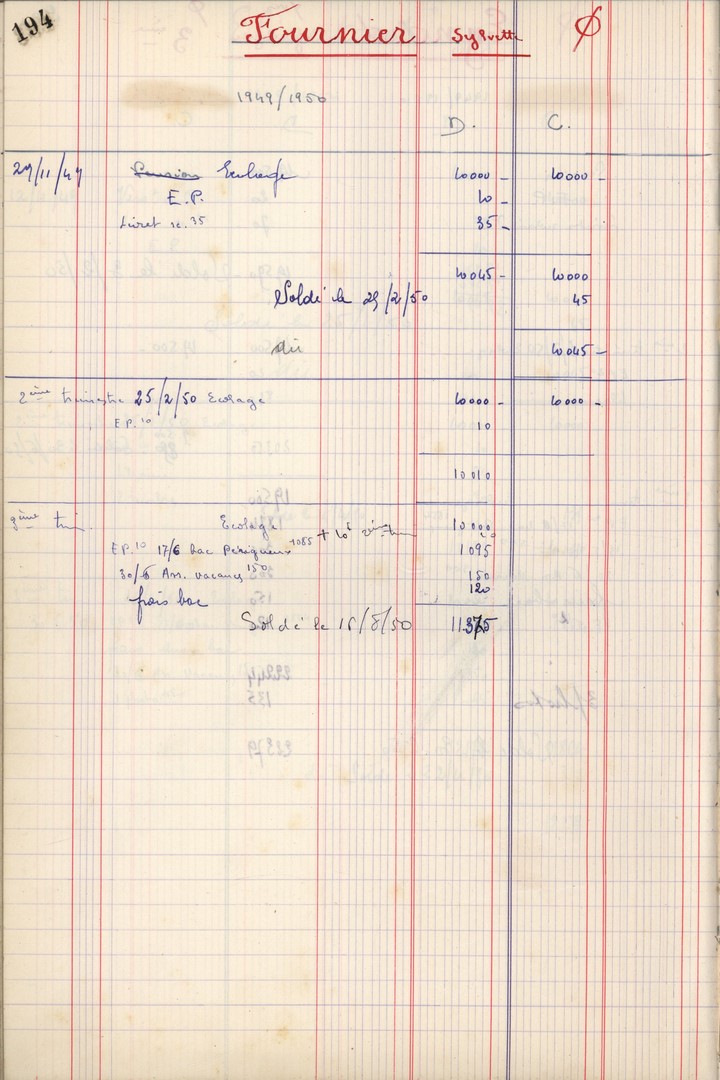 194 Fournier Sylvette Ø
1949/1950
D. C.
29/11/49 Pension Ecolage 10000 - 10000 -
E.P. 10 -
Livret sc. 35 35 -
10045 - 10000
Soldé le 25/2/50 45
10045 -
2ème trimestre 25/2/50 Ecolage 10000 - 10000 -
EP. 10 10
10010
3ème tri. Ecolage + 10 2ème tri 10000
EP. 10 17/6 bac Périgueux 1085 1095
30/6 Ass. vacances 150 150
frais bac 120
Soldé le 18/8/50 11375